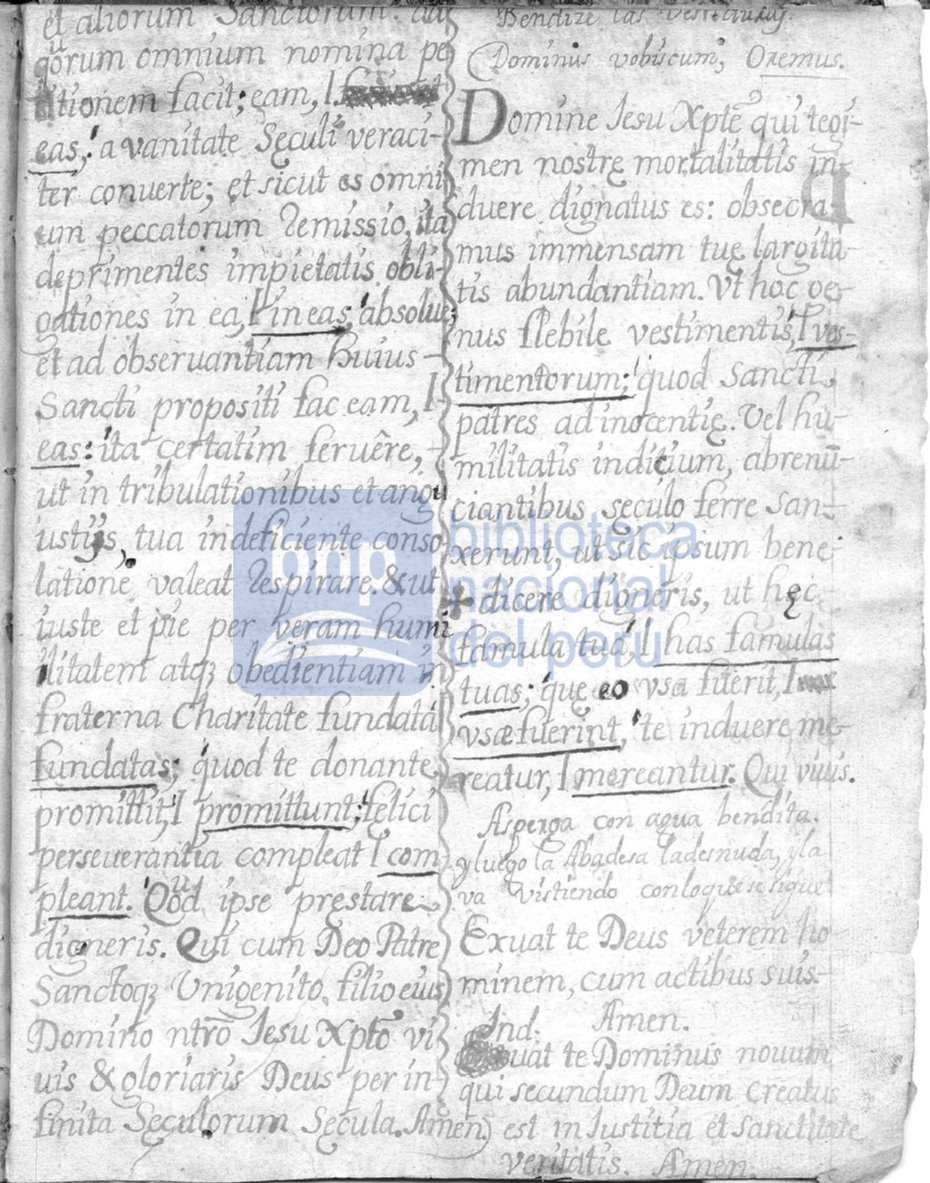 et aliorum Sanctorum. au
quorum omnium nomina pe
titionem facit; eam, l.
eas, a vanitate Sęculi veraci-
ter conuerte; et sicut es omni
um peccatorum Remissio, ita
deprimentes impietatis obli-
gationes in ea, l in eas, absolue;
et ad obseruantiam huius
Sancti propositi fac eam, l
eas: ita certatim feruêre,
ut in tribulationibus et angu
ustijs, tua indeficiente conso
latione valeat Respirare. & ut
iuste et pie per veram humi
ilitatem atqz obedientiam in
fraterna Charitate fundata
fundatas; quod te donante
promittit, l promittunt; felici
perseuerantia compleat l com
pleant. Quod ipse pręstare
digneris. Qui cum Deo Patre
Sanctoqz Unigenito, filio eius
Domino ntrõ Iesu Xptõ vi
uis & gloriaris Deus per in-
finita Sęculorum Sęcula. Amen.
Bendize las Vestiduras.
Dominus vobiscum, Oremus.
Domine Iesu Xptẽ qui tegi-
men nostrę mortalitatis in-
duere dignatus es: obsecra-
mus immensam tuę largita-
tis abundantiam. Vt hoc ge-
nus flebile vestimentis, l ves-
timentorum; quod Sancti
patres ad inocentię. Vel hu-
militatis inditium, abrenū-
ciantibus seculo ferre san-
xerunt, ut sic ipsum bene-
✠ dicere digneris, ut hęc
famula tua, l has famulas
tuas; que eo vsa fuerit, l
vsæ fuerint, te induere me-
reatur, l mereantur. Qui viuis.
Asperga con agua bendita.
y luego la Abadesa la desnuda, y la
va vistiendo con lo que se sigue
Exuat te Deus veterem ho
minem, cum actibus suis.
Amen.
Ind:
uat te Dominus nouum
qui secundum Deum Creatus
est in Iustitia et Sanctitate
veritatis. Amen.
bnp
biblioteca
nacional
del perú